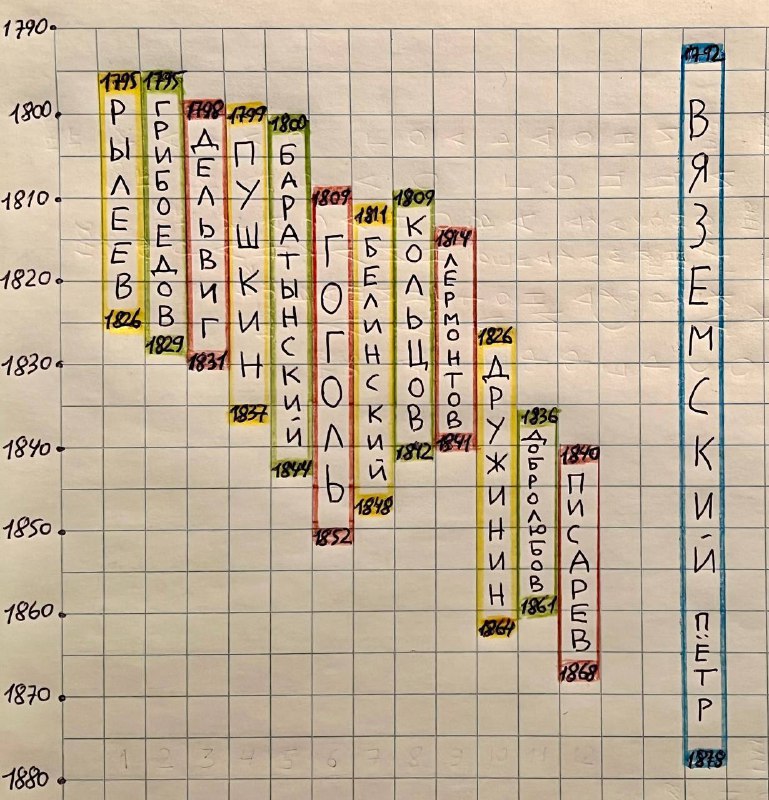 1790
1800
1810
1820
1830
1840
1850
1860
1870
1880
1795
РЫЛЕЕВ
1826
1795
ГРИБОЕДОВ
1829
1798
ДЕЛЬВИГ
1831
1799
ПУШКИН
1837
1800
БАРАТЫНСКИЙ
1844
1809
ГОГОЛЬ
1852
1811
БЕЛИНСКИЙ
1848
1809
КОЛЬЦОВ
1842
1814
ЛЕРМОНТОВ
1841
1826
ДРУЖИНИН
1864
1836
ДОБРОЛЮБОВ
1861
1840
ПИСАРЕВ
1868
1792
ВЯЗЕМСКИЙ ПЁТР
1878
1 2 3 4 5 6 7 8 9 10 11 12